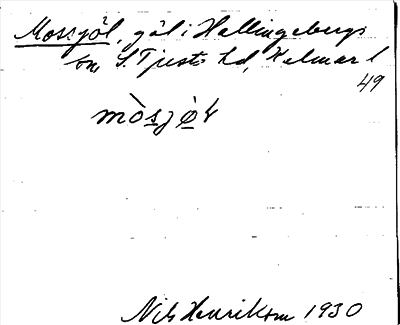 Mossjöl, göl i Hallingebergs
sn, S. Tjusts hd, Kalmar l
49
Nils Henrikson 1930